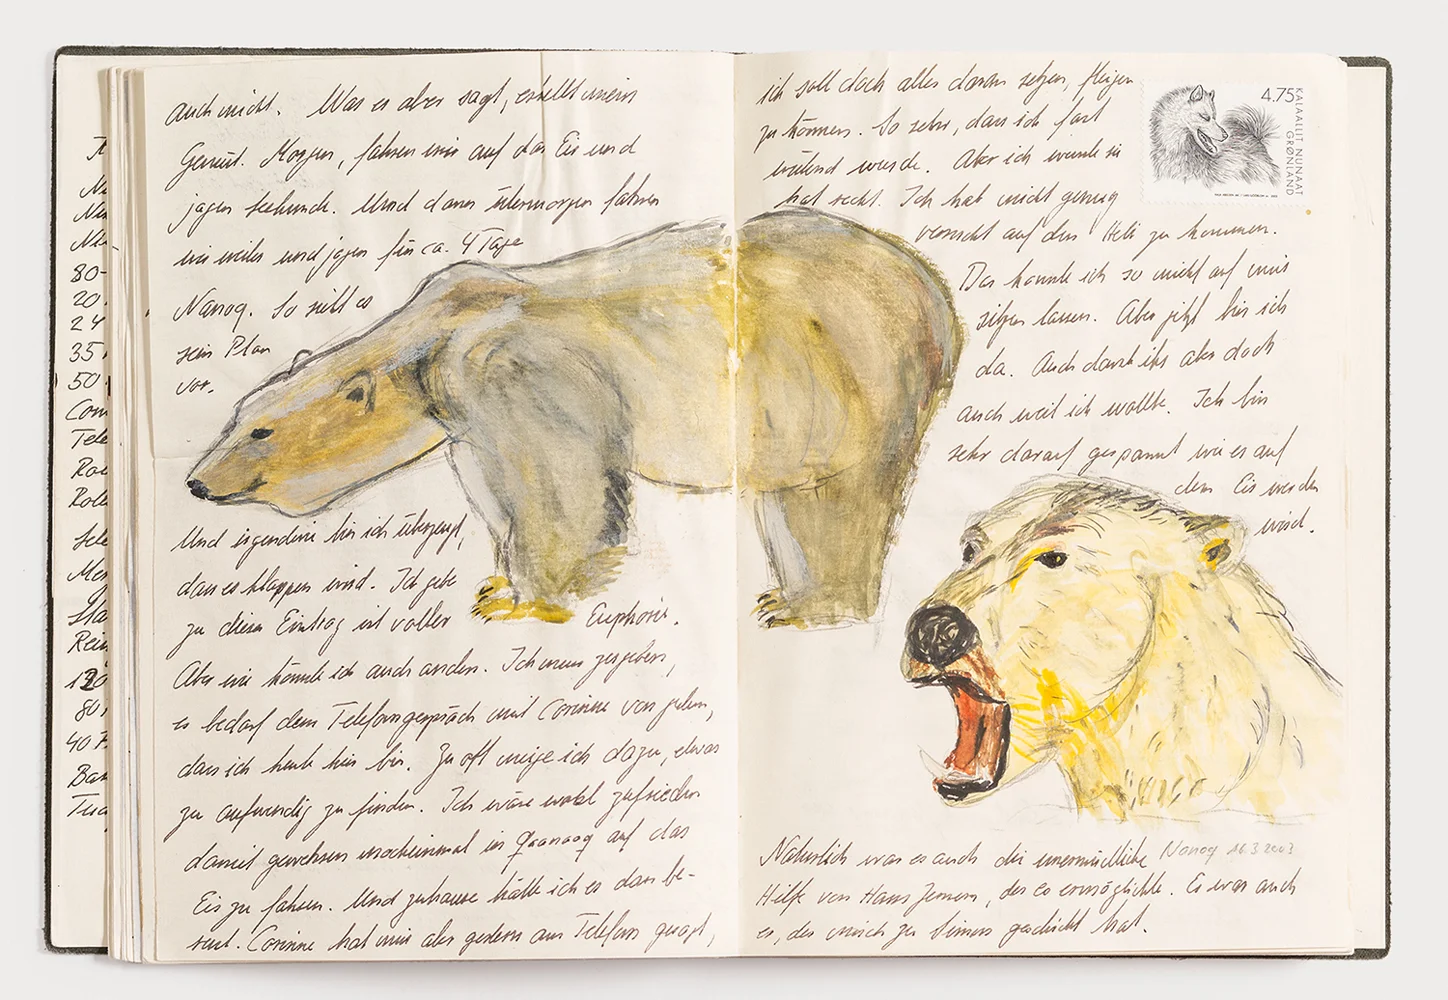 auch nicht. Was er aber sagt, erhellt mein
Gemüt. Morgen, fahren wir auf das Eis und
jagen Seehunde. Und dann übermorgen fahren
wir weiter und jagen für ca. 4 Tage
Nanoq. So will es
sein Plan
vor.
Und irgendwie bin ich überzeugt,
dass es klappen wird. Ich gebe
zu dieser Eintrag ist voller Euphorie.
Aber wie könnte ich auch anders. Ich muss zugeben,
es bedarf dem Telefongespräch mit Corinne von gestern,
dass ich heute hier bin. Zu oft neige ich dazu, etwas
zu aufwendig zu finden. Ich wäre wohl zufrieden
damit gewesen nocheinmal in Qaanaaq auf das
Eis zu fahren. Und zuhause hätte ich es dann be-
reut. Corinne hat mir aber gestern am Telefon gesagt,
ich soll doch alles daran setzen, fliegen
zu können. So sehr, dass ich fast
wütend wurde. Aber ich wusste sie
hat recht. Ich hab nicht genug
versucht auf den Heli zu kommen.
Das konnte ich so nicht auf mir
sitzen lassen. Aber jetzt bin ich
da. Auch dank ihr aber doch
auch weil ich wollte. Ich bin
sehr darauf gespannt wie es auf
dem Eis werden
wird.
Natürlich war es auch die unermüdliche
Hilfe von Hans Jensen, der es ermöglichte. Er war auch
es, der mich zu Simon geschickt hat.
Nanoq 16.3.2003
4.75
KALAALLIT NUNAAT
GRØNLAND
80
20
24
35
50
Com
Tele
Rol
Rein
120
80
40
Ban